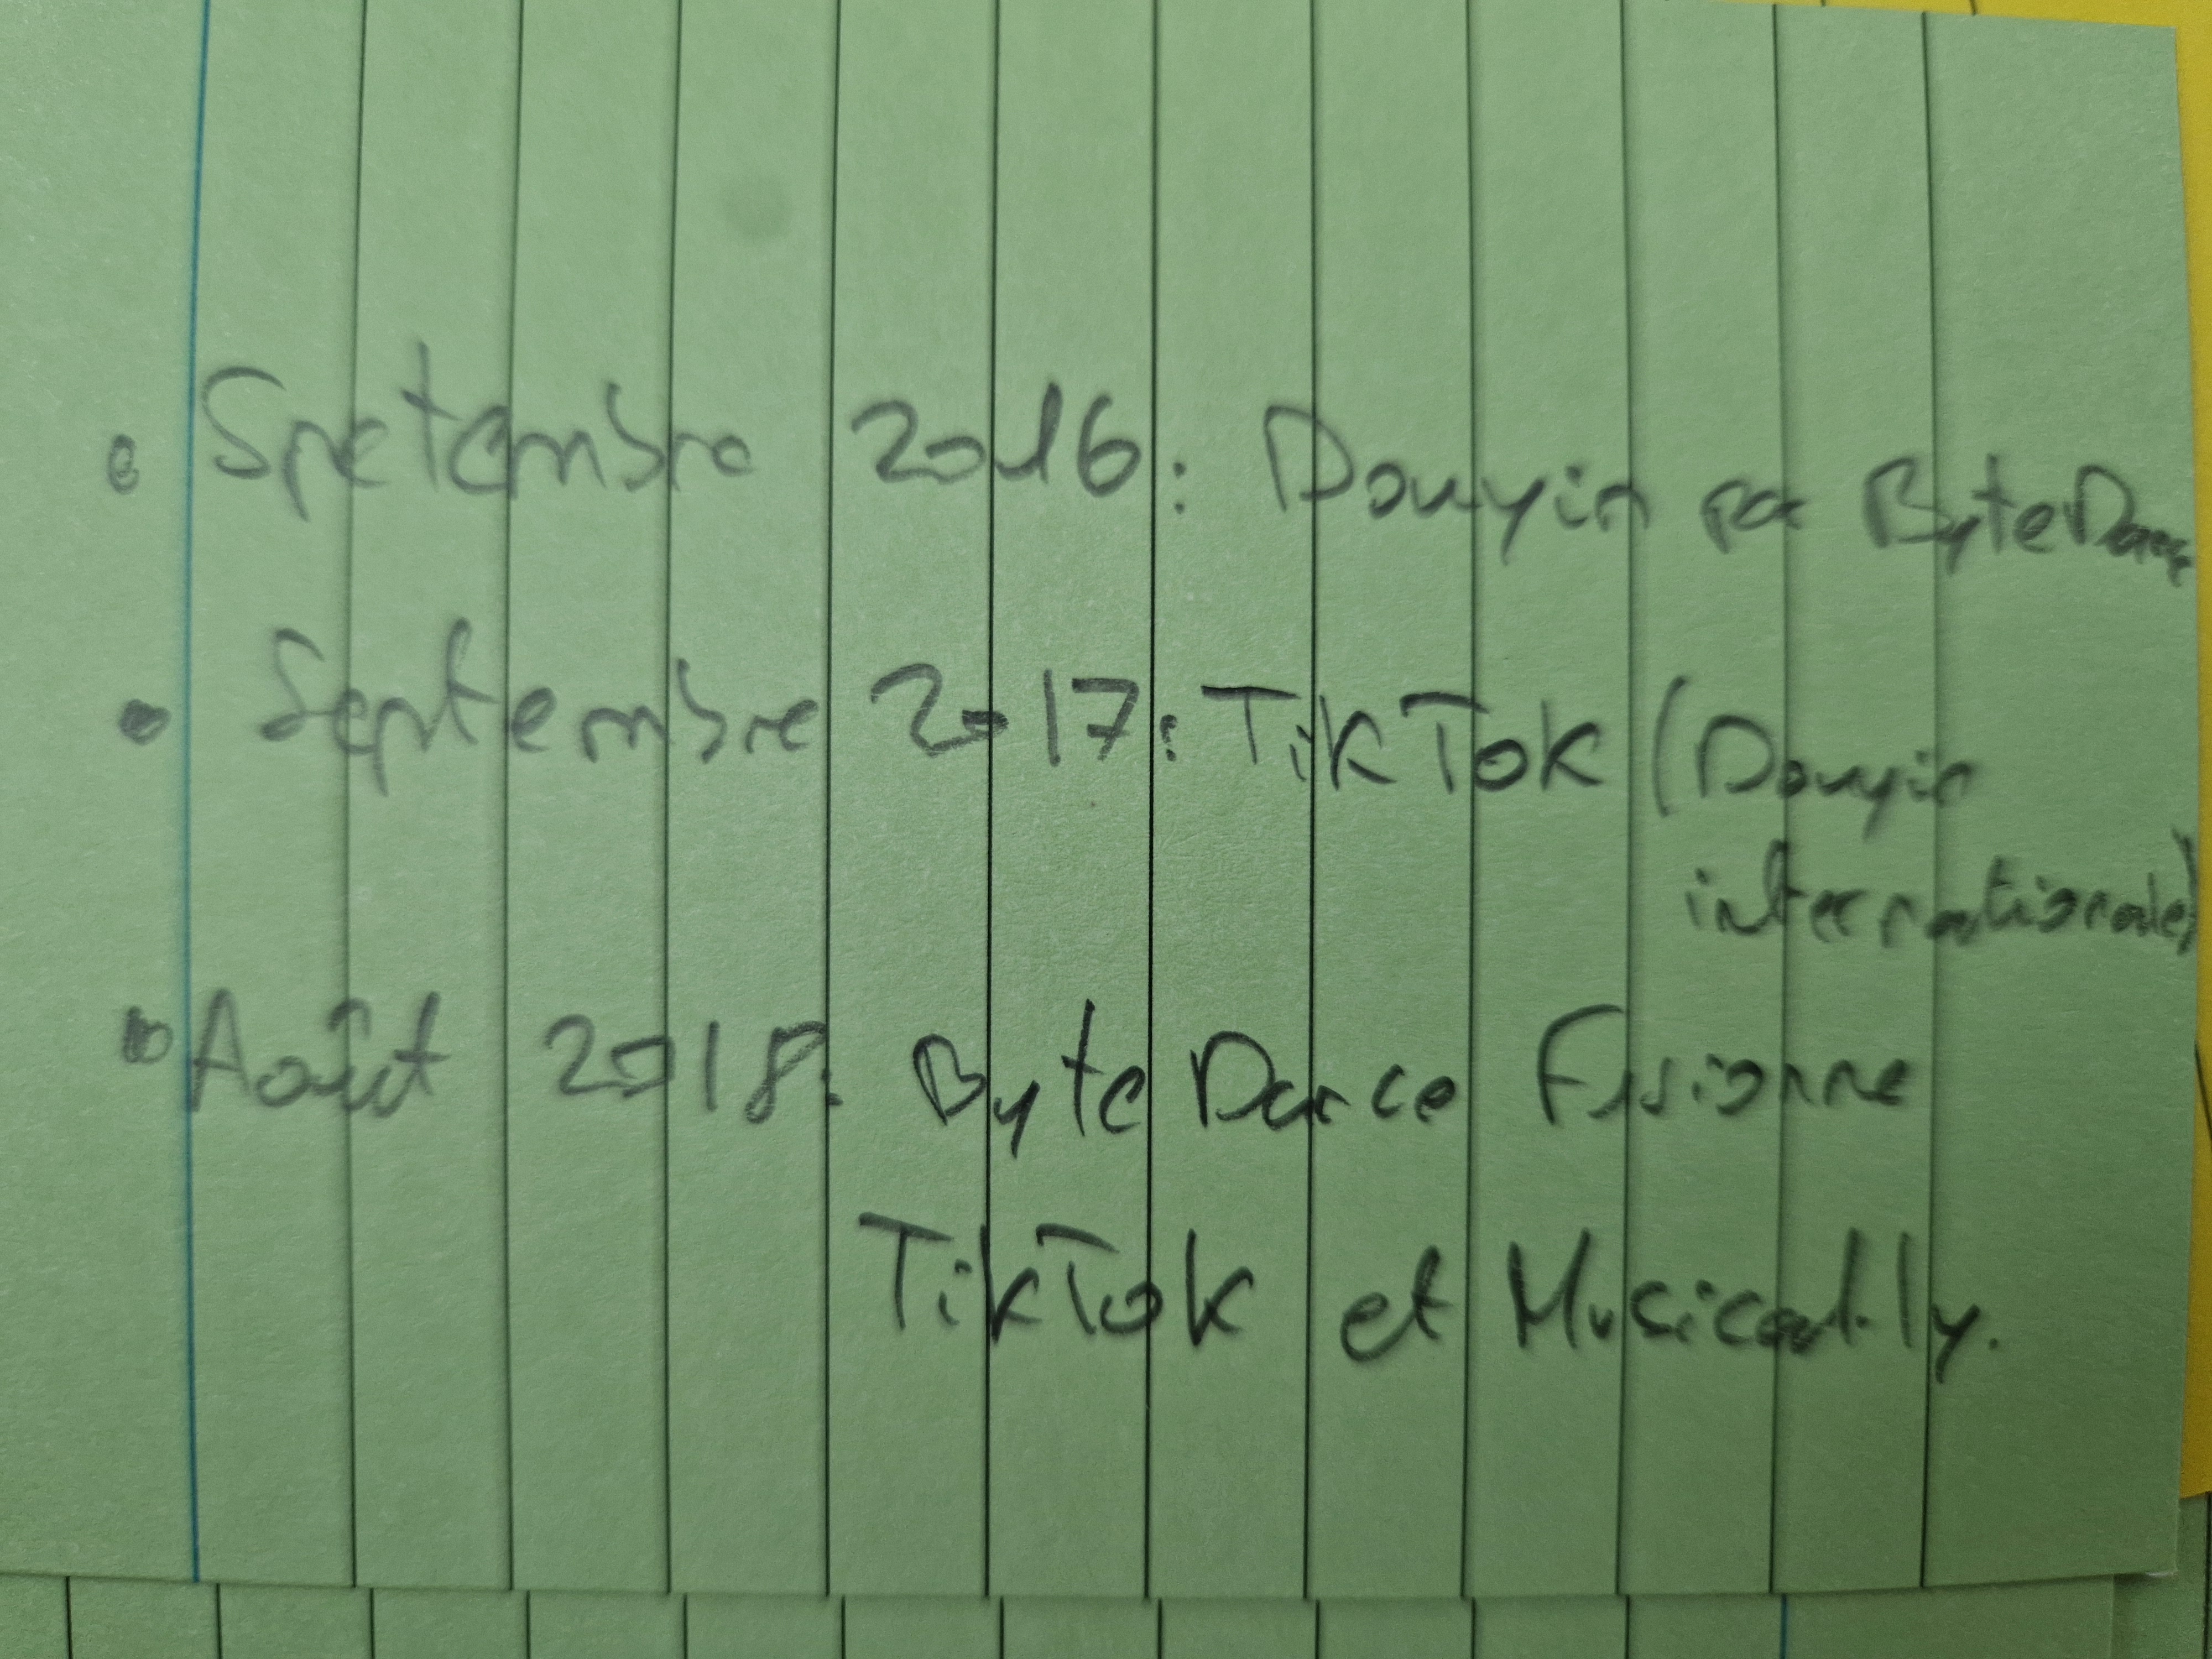 • Spetembre 2016: Douyin par ByteDance
• Septembre 2017: TikTok (Douyin
internationale)
• Août 2018: ByteDance Fusionne
TikTok et Musical.ly.